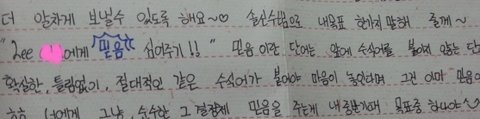 더 알차게 보낼수 있도록 해요~♡ 솔선수범으로 내목표 한가지 말해 줄께~
"Lee 에게 믿음 심어주기!!" 믿음 이란 단어는 앞에 수식어를 붙이지 않는 단
확실한, 틀림없이, 절대적인 같은 수식어가 붙어야 마음이 놓인다면 그건 이미 믿음이
너에게 그냥, 순수한 그 결정체 믿음을 주는게 내 목표중 하나야~